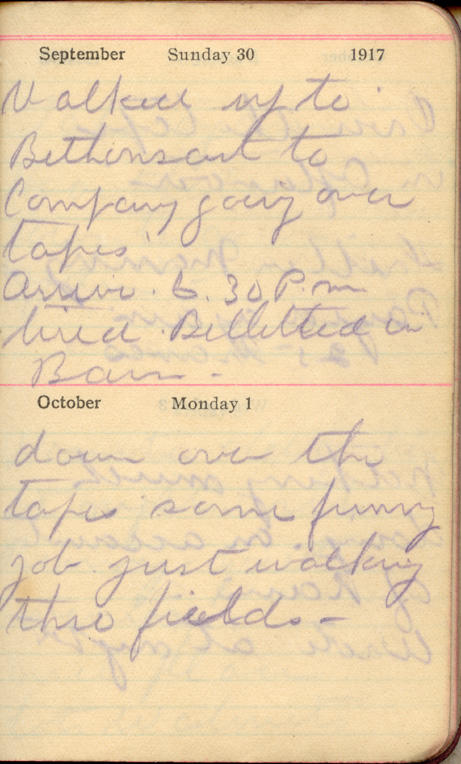 September Sunday 30 1917
Walked up to
Bethonsart to
Company going over
tapes.
Arrive. 6.30 P.m
tired Billetted in
Barn -
October Monday 1
down over the
tapes some funny
job just walking
thro fields -